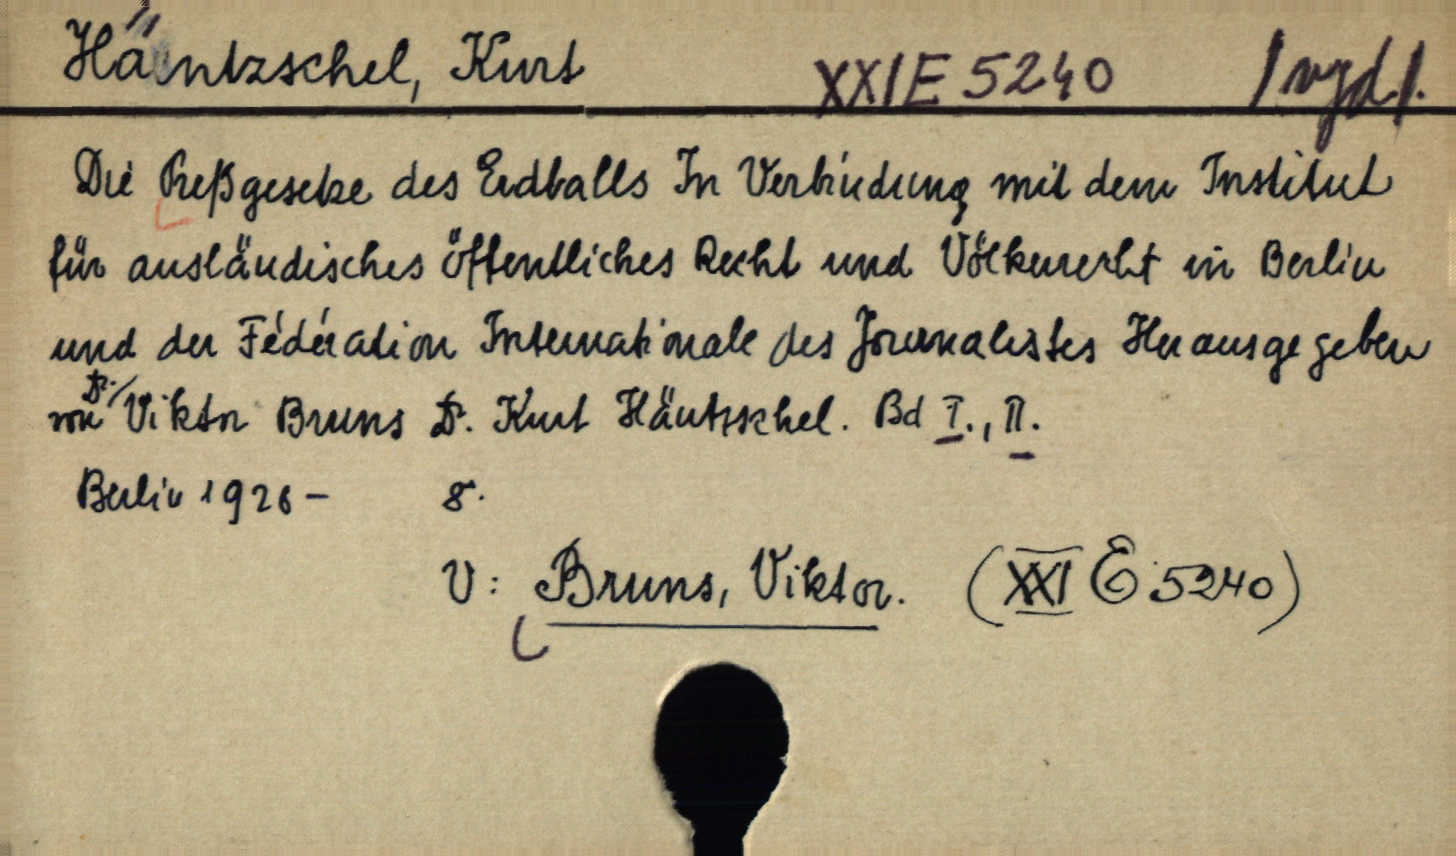 Häntzschel, Kurt XXI E 5240 /vgd/.
Die Preßgesetze des Erdballs In Verbindung mit dem Institut
für ausländisches öffentliches Recht und Völkerrecht in Berlin
und der Fédération Internationale des Journalistes Herausgegeben
von Dr. Viktor Bruns Dr. Kurt Häntzschel. Bd I., II.
Berlin 1928- 8.
V: Bruns, Viktor. (XXI E 5240)